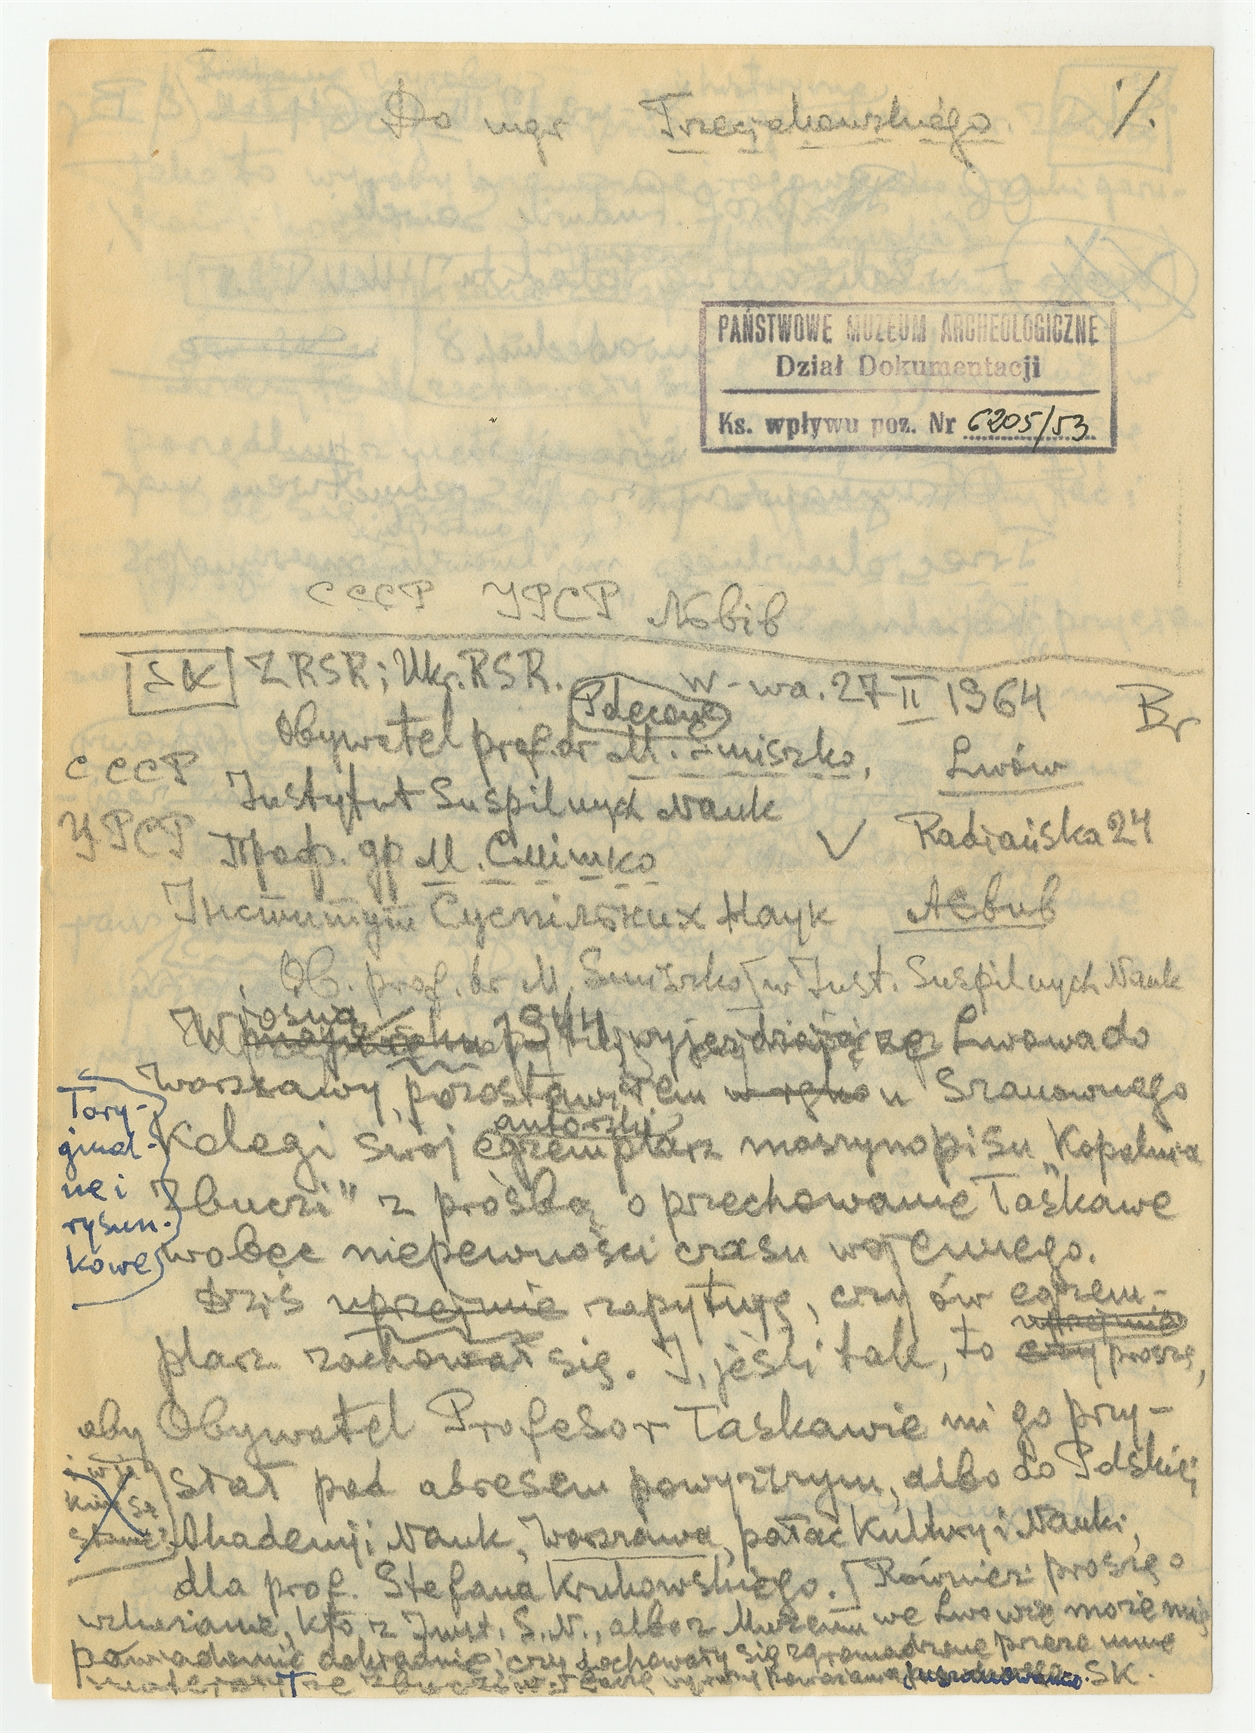 Do mgr Trzeciakowskiego. 1/.
PAŃSTWOWE MUZEUM ARCHEOLOGICZNE
Dział Dokumentacji
Ks. wpływu poz. Nr 6205/53
СССР УРСР Львів
SK ZRSR; Ukr. RSR. W-wa. 27 II 1964 Br
Polecony
Obywatel prof. dr M. Śmiszko, Lwów
СССР Instytut Suspilnych Nauk
УРСР Проф. др М. Смішко V Radiańska 24
Інститут Суспільних Наук Львів
Ob. prof. dr M. Smiszko w Inst. Suspilnych Nauk
wiosną
W 1944 wyjeżdżając ze Lwowa do
Warszawy, pozostawiłem u Szanownego
autorski
Kolegi swój egzemplarz maszynopisu „Kopalnia
Zbucz" z prośbą o przechowanie łaskawe
wobec niepewności czasu wojennego.
1 ory-
ginal-
ne i
rysun-
kowe
Dziś uprzejmie zapytuję, czy ów egzem-
uprzejmie
plarz zachował się. I, jeśli tak, to czy proszę,
aby Obywatel Profesor łaskawie mi go przy-
słał pod adresem powyższym, albo do Polskiej
Akademji Nauk, Warszawa, pałac Kultury i Nauki,
dla prof. Stefana Krukowskiego. Również proszę o
wskazanie, kto z Inst. S. N., albo z Muzeum we Lwowie może mię
powiadomić dokładnie czy zachowały się zgromadzone przeze mnie
materiały ze SK.